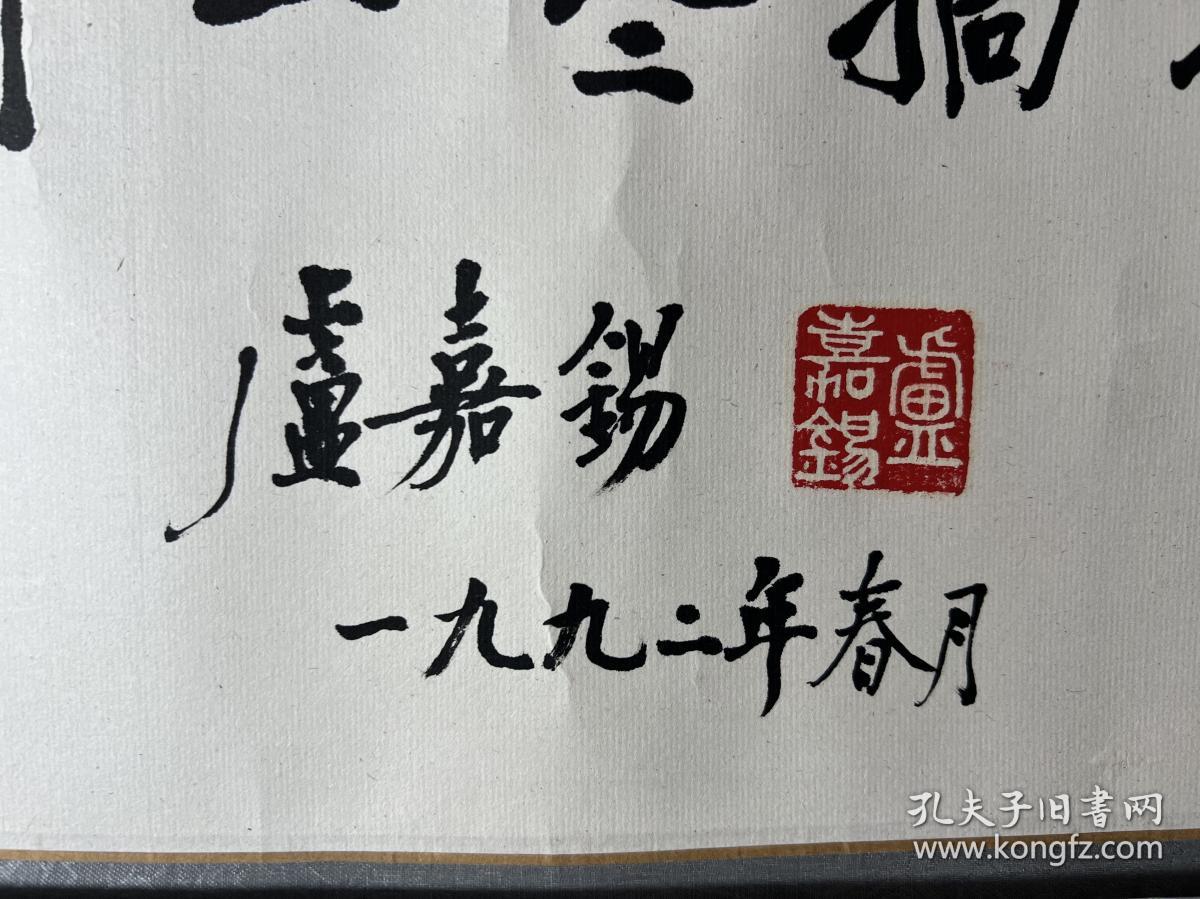 摘
盧嘉錫
盧嘉錫
一九九二年春月
孔夫子旧書网
www.kongfz.com